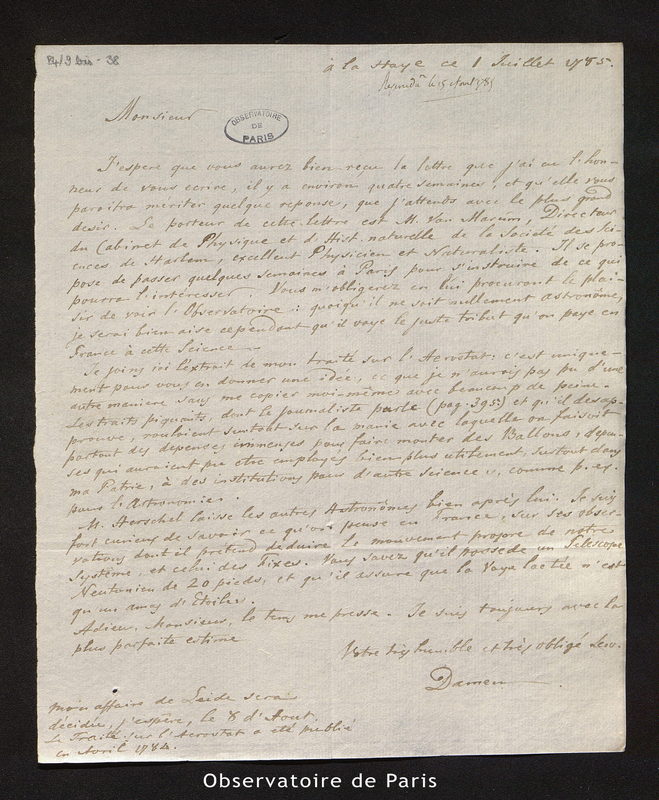 B4/9 bis - 38
à la Haye ce 1 Juillet 1785.
Repondu le 15 Aout 1785
Monsieur
OBSERVATOIRE
DE
PARIS
J'espere que vous aurez bien reçu la lettre que j'ai eu l'hon-
neur de vous ecrire, il y a environ quatre semaines, et qu'elle vous
paroitra mériter quelque reponse, que j'attends avec le plus grand
desir. Le porteur de cette lettre est M. Van Marum, Directeur
du Cabinet de Physique et d'Hist. naturelle de la Société des Sci-
ences de Harlem, excellent Physicien et Naturaliste. Il se pro-
pose de passer quelques semaines à Paris pour s'instruire de ce qui
pourra l'intéresser. Vous m'obligerez en lui procurant le plai-
sir de voir l'Observatoire: quoiqu'il ne soit nullement astronome,
je serai bien aise cependant qu'il voye le juste tribut qu'on paye en
France à cette Science.
Je joins ici l'extrait de mon traité sur l'Aerostat: c'est unique-
ment pour vous en donner une idée, ce que je n'aurois pas pu d'une
autre maniere sans me copier moi-même avec beaucoup de peine.
Les traits piquants, dont le journaliste parle (pag. 395) et qu'il desap-
prouve, rouloient surtout sur la manie avec laquelle on faisoit
partout des depenses immenses pour faire monter des Ballons, depen-
ses qui auroient pu être employés bien plus utilement, surtout dans
ma Patrie, à des institutions pour d'autre sciences, comme p. ex.
pour l'Astronomie.
M. Herschel laisse les autres Astronômes bien après lui. Je suis
fort curieux de savoir ce qu'on pense en France, sur ses obser-
vations dont il pretend deduire le mouvement propre de notre
Système, et celui des Fixes. Vous savez qu'il possede un Telescope
Neutonien de 20 pieds, et qu'il assure que la Voye lactée n'est
qu'un amas d'Etoiles.
Adieu, Monsieur, le tems me presse. Je suis toujours avec la
plus parfaite estime
Vôtre très humble et très obligé Serv.
Damen
mon affaire de Leide sera
décidée, j'espère, le 8 d'Aout.
Le Traité sur l'Aerostat a été publié
en Avril 1784.
Observatoire de Paris